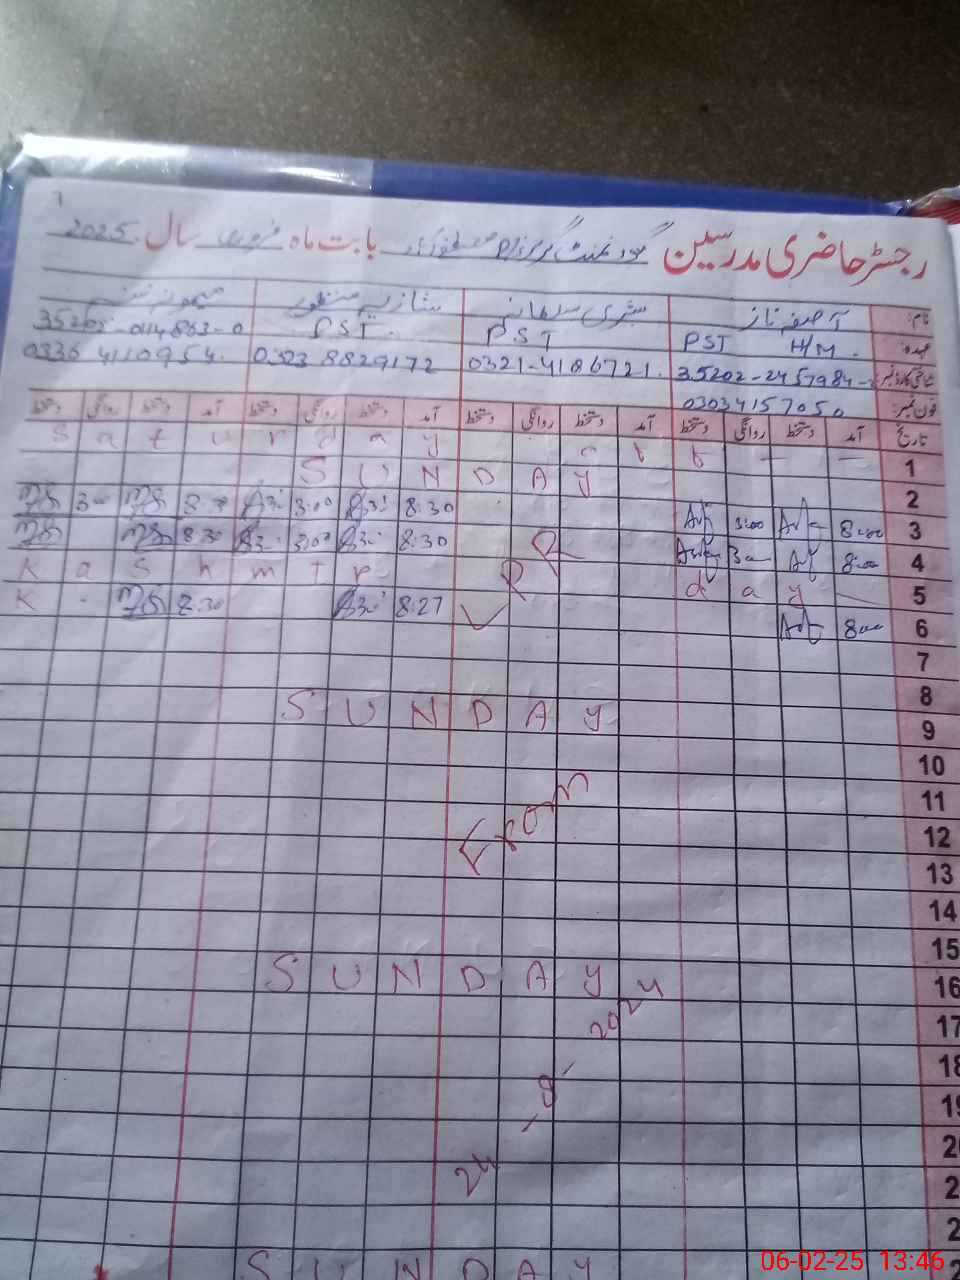 رجسٹر حاضری مدرسین گورنمنٹ گرلز بابت ماہ فروری سال 2025
نام: آصفہ ناز بشریٰ سلطانہ شازیہ منظور میمونہ
عہدہ: PST H/M. PST PST. 35202-0114863-0
شناختی کارڈ نمبر 35202-2457984- 0321-4186721. 0323 8829172 0336 4110954.
فون نمبر: 03034157050
تاریخ آمد دستخط روانگی دستخط آمد دستخط روانگی دستخط آمد دستخط روانگی دستخط آمد دستخط روانگی دستخط
1 Saturday off
2 SUNDAY
3 8:00 3:00 8:30 3:00 8:30 3:00
4 8:00 3:00 8:30 3:00 8:30
5 Kashmir day
6 8:00 8:27 8:30 K
7
8
9 SUNDAY
10
11
12
13
14
15
16 SUNDAY
17
18
19
SUNDAY
From
24-8-2024
06-02-25 13:46